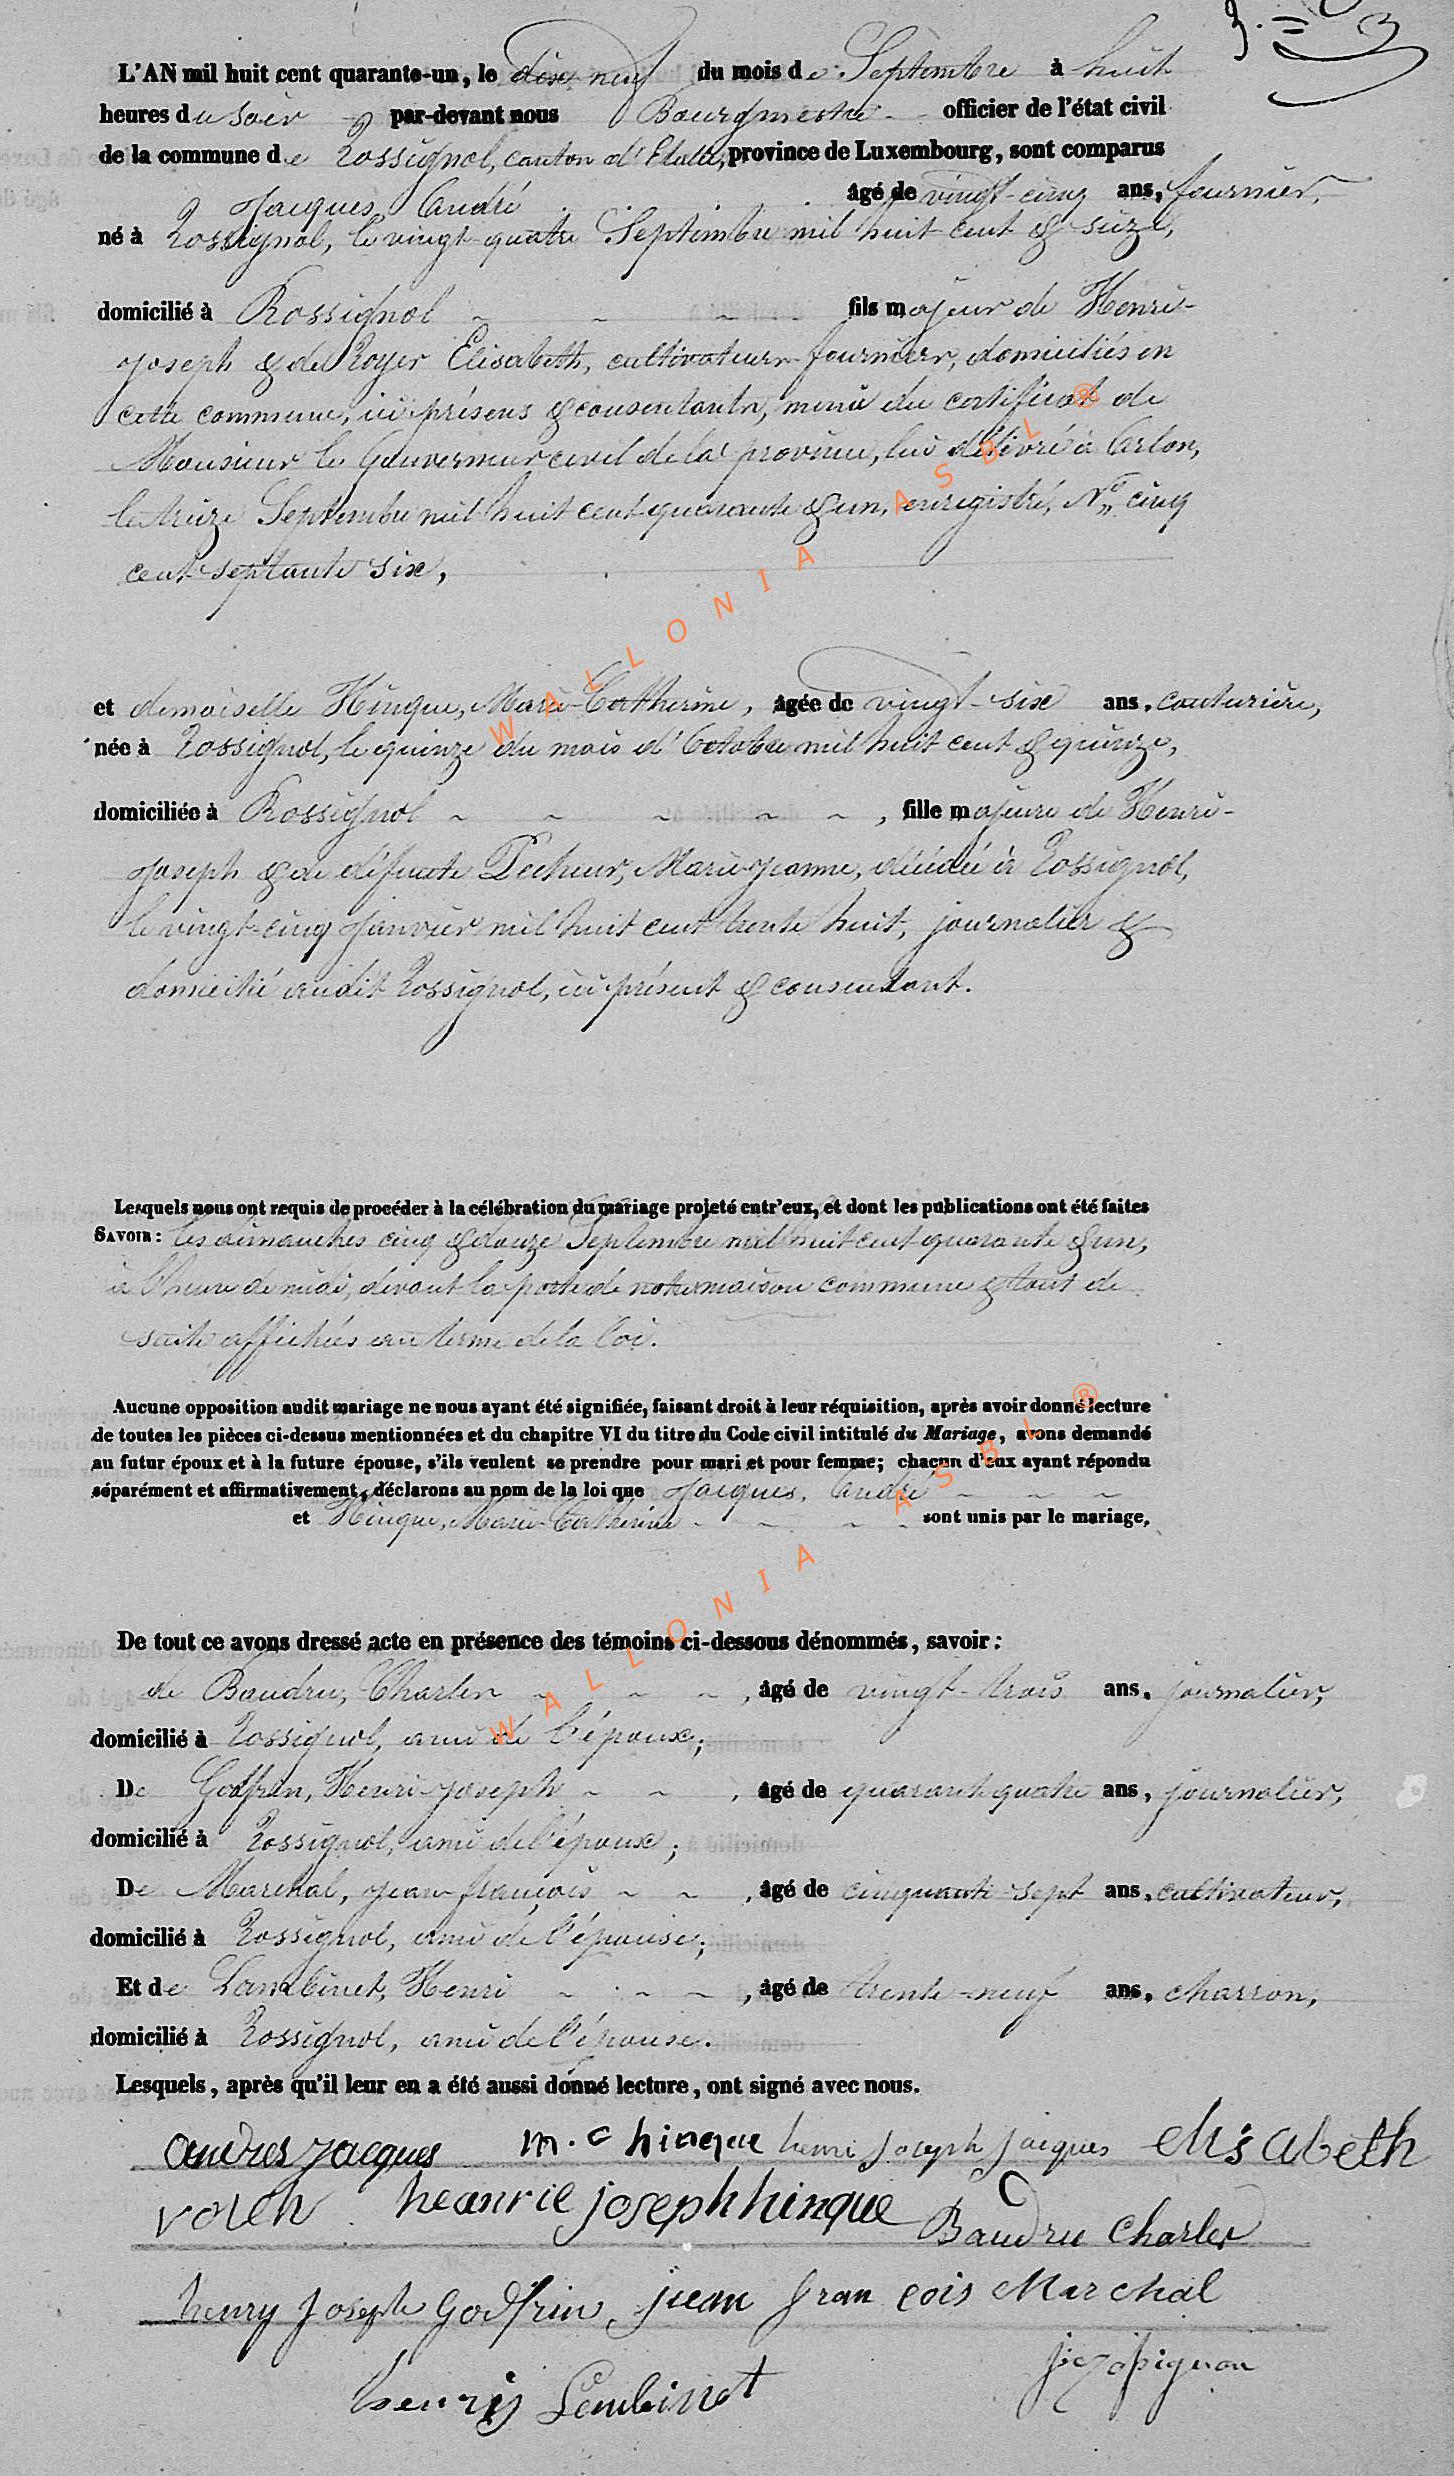 L'AN mil huit cent quarante-un, le dix neuf du mois de Septembre à huit
heures du soir par-devant nous Bourgmestre officier de l'état civil
de la commune de Rossignol, canton d'Etalle, province de Luxembourg, sont comparus
Jacques, André âgé de vingt-cinq ans, fournier,
né à Rossignol, le vingt-quatre Septembre mil huit cent & seize,
domicilié à Rossignol fils majeur de Henri-
joseph & de Royer Elisabeth, cultivateurs-fourniers, domiciliés en
cette commune, ici présens & consentants, muni du certificat de
Monsieur le Gouverneur civil de la province, lui délivré à Arlon,
le treize Septembre mil huit cent quarante & un, enregistré, No. cinq
cent septante six,
et demoiselle Hinque, Marie-Catherine, âgée de vingt-six ans, couturière,
née à Rossignol, le quinze du mois d'Octobre mil huit cent & quinze,
domiciliée à Rossignol, fille majeure de Henri-
joseph & de défunte Pecheur, Marie-jeanne, décédée à Rossignol,
le vingt-cinq Janvier mil huit cent trente huit, journalier &
domicilié audit Rossignol, ici présent & consentant.
Lesquels nous ont requis de procéder à la célébration du mariage projeté entr'eux, et dont les publications ont été faites
SAVOIR : les dimanches cinq & douze Septembre mil huit cent quarante & un,
à l'heure de midi, devant la porte de notre maison commune & tout de
suite affichées au terme de la loi.
Aucune opposition audit mariage ne nous ayant été signifiée, faisant droit à leur réquisition, après avoir donné lecture
de toutes les pièces ci-dessus mentionnées et du chapitre VI du titre du Code civil intitulé du Mariage, avons demandé
au futur époux et à la future épouse, s'ils veulent se prendre pour mari et pour femme; chacun d'eux ayant répondu
séparément et affirmativement, déclarons au nom de la loi que Jacques, André
et Hinque, Marie-Catherine sont unis par le mariage,
De tout ce avons dressé acte en présence des témoins ci-dessous dénommés, savoir :
de Baudru, Charles, âgé de vingt-trois ans, journalier,
domicilié à Rossignol, ami de l'époux;
De Godfrin, Henri-joseph, âgé de quarant quatre ans, journalier,
domicilié à Rossignol, ami de l'époux;
De Marchal, jean-françois, âgé de cinquante-sept ans, cultivateur,
domicilié à Rossignol, ami de l'épouse;
Et de Lambinet, Henri, âgé de trente-neuf ans, charron,
domicilié à Rossignol, ami de l'épouse.
Lesquels, après qu'il leur en a été aussi donné lecture, ont signé avec nous.
andres jacques m. c hinque henri joseph jacques elisabeth
heanrie joseph hinque Baudru charles
henry joseph godfrin juean fran cois marchal
henrij Lembinet
WALLONIA ASBL ®
WALLONIA ASBL ®